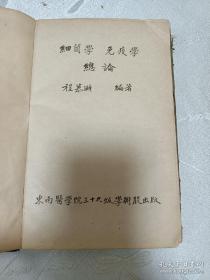 細菌學 免疫學
總論
程慕頤 編著
東南醫學院三十九級學術股出版